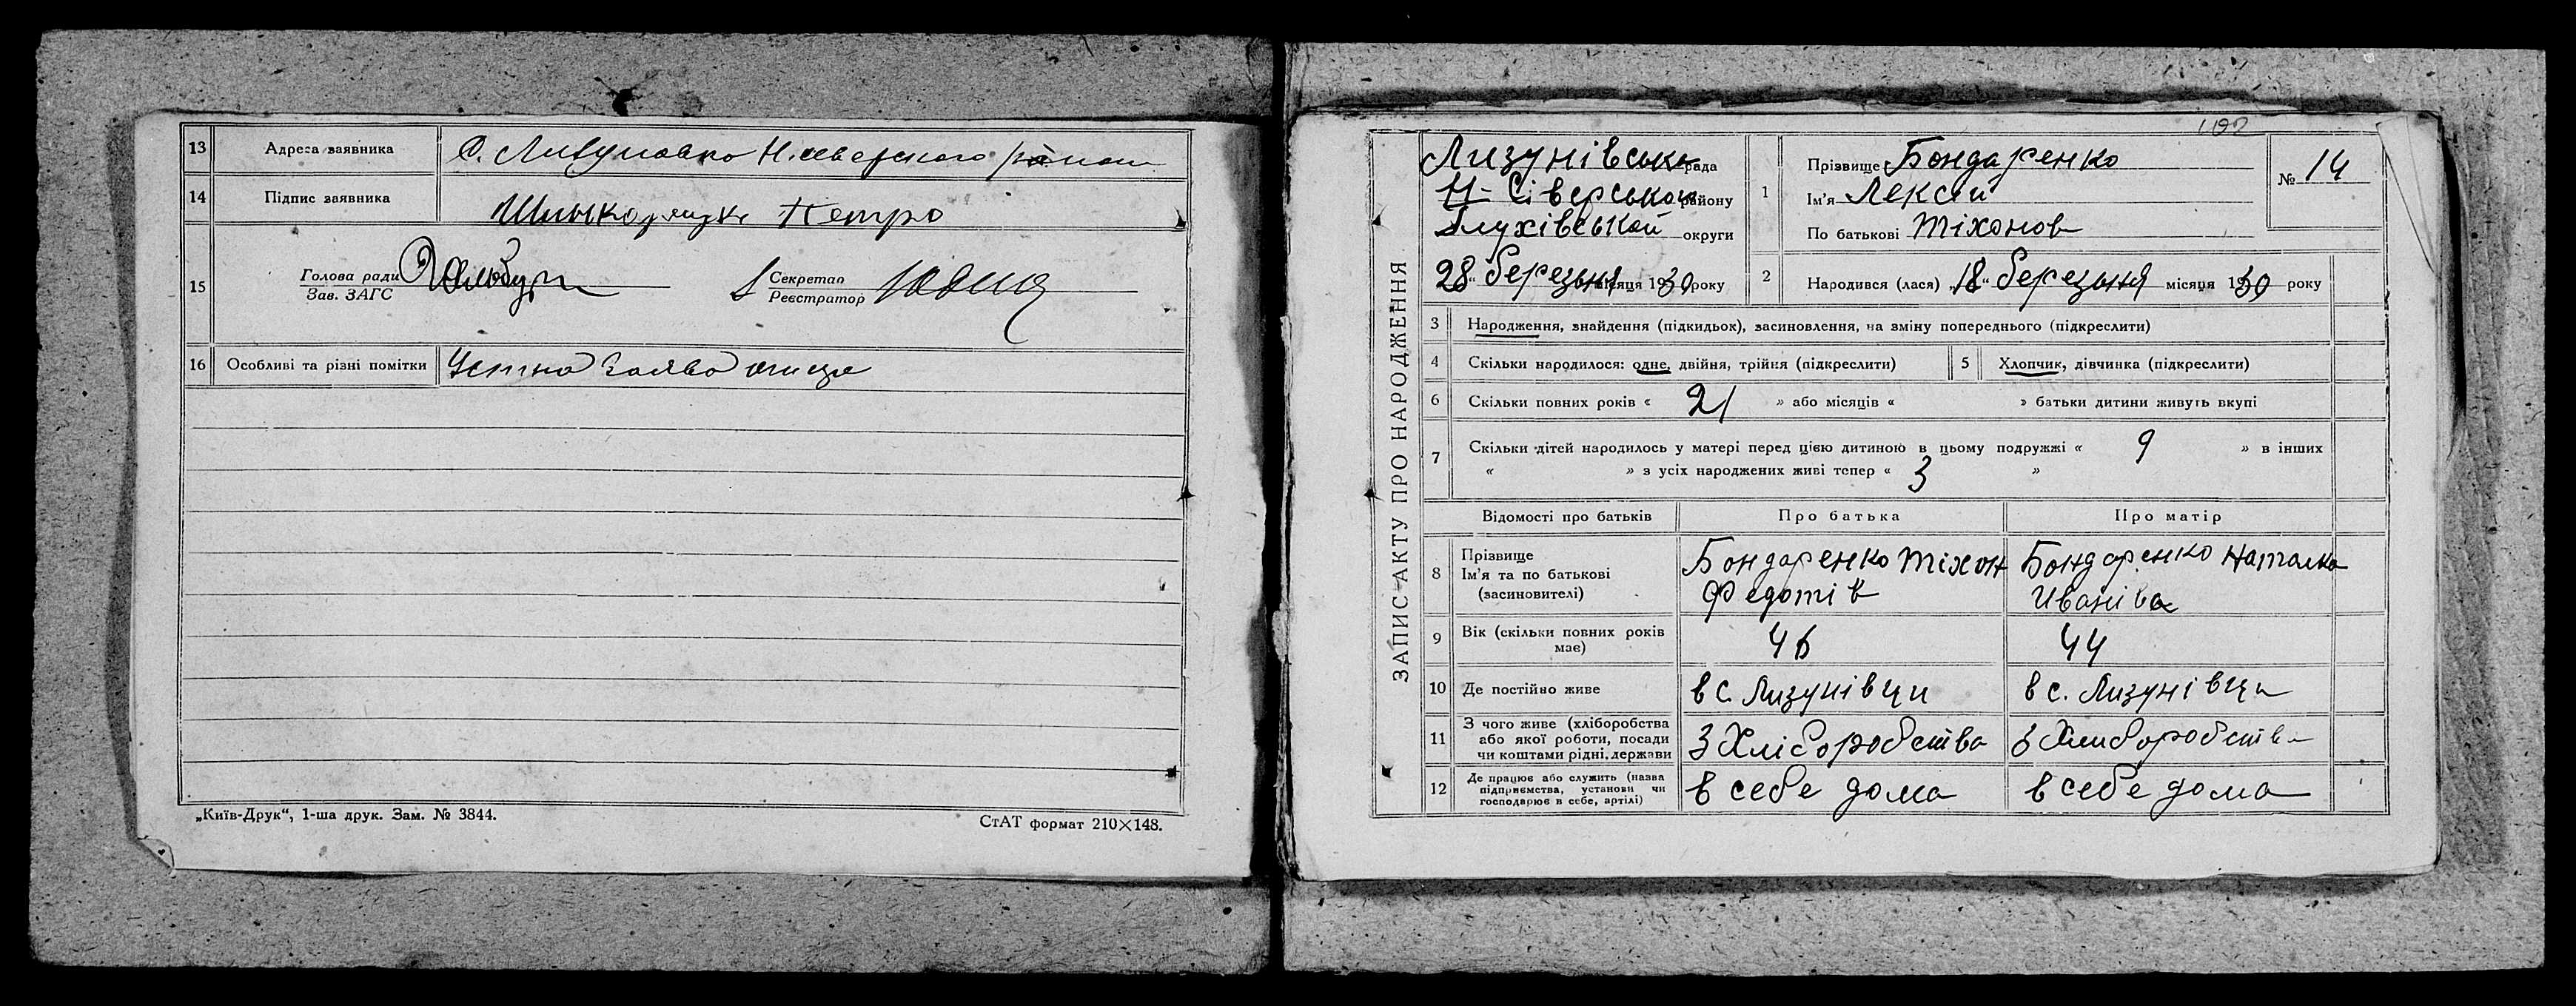 13 Адреса заявника С. Лизуновка Н.северского района
14 Підпис заявника Петро
15 Голова ради
Зав. ЗАГС
Секретар
Реєстратор
16 Особливі та різні помітки Устна Заява отця
„Київ-Друк“, 1-ша друк. Зам. № 3844.
СтАТ формат 210×148.
102
ЗАПИС АКТУ ПРО НАРОДЖЕННЯ
Лизунівська рада
Н-Сіверського району
Глухівськой округи
28“ березьня місяця 1930 року
1 Прізвище Бондаренко
Ім'я Лексій
По батькові Тіхонов
№ 14
2 Народився (лася) „18“ березьня місяця 1930 року
3 Народження, знайдення (підкидьок), засиновлення, на зміну попереднього (підкреслити)
4 Скільки народилося: одне, двійня, трійня (підкреслити) 5 Хлопчик, дівчинка (підкреслити)
6 Скільки повних років « 21 » або місяців « » батьки дитини живуть вкупі
7 Скільки дітей народилось у матері перед цією дитиною в цьому подружжі « 9 » в інших
« » з усіх народжених живі тепер « 3 »
Відомості про батьків Про батька Про матір
8 Прізвище
Ім'я та по батькові
(засиновителі)
Бондаренко Тіхон
Федотів
Бондаренко Наталка
Иваніва
9 Вік (скільки повних років
має)
46 44
10 Де постійно живе в с. Лизунівци в с. Лизунівци
11 З чого живе (хліборобства
або якої роботи, посади
чи коштами рідні, держави
З Хліборобства З Хлиборобства
12 Де працює або служить (назва
підприємства, установи чи
господарює в себе, артілі)
в себе дома в себе дома